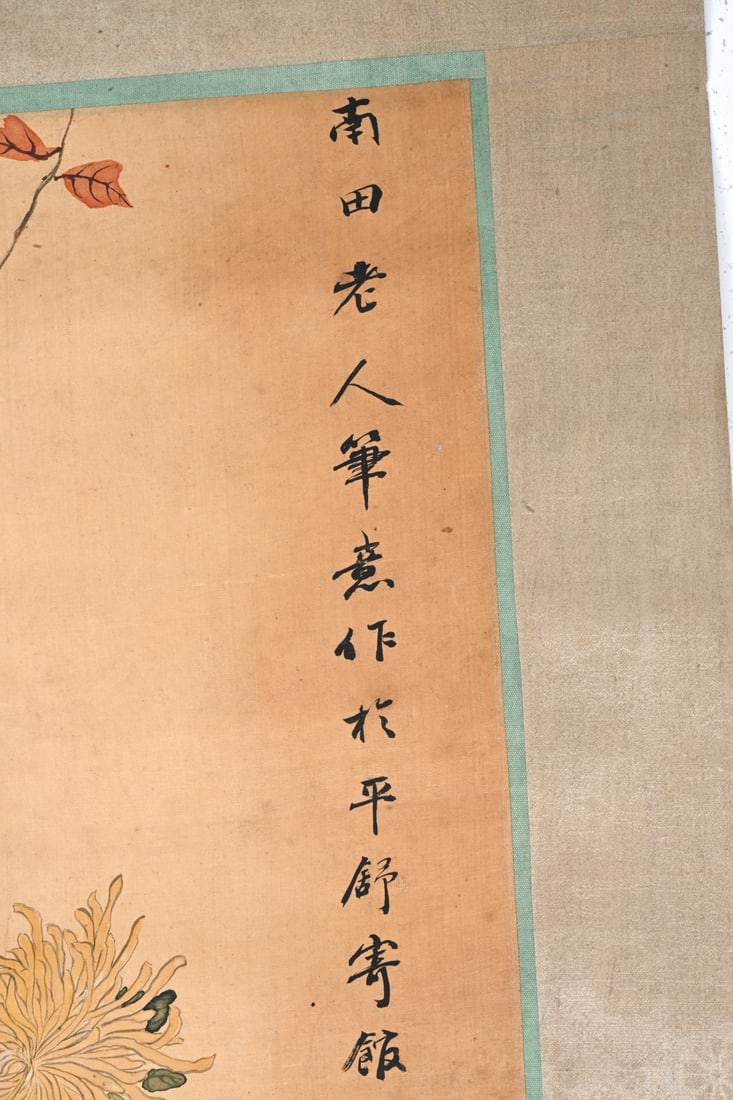 南田老人筆意作於平舒寄館